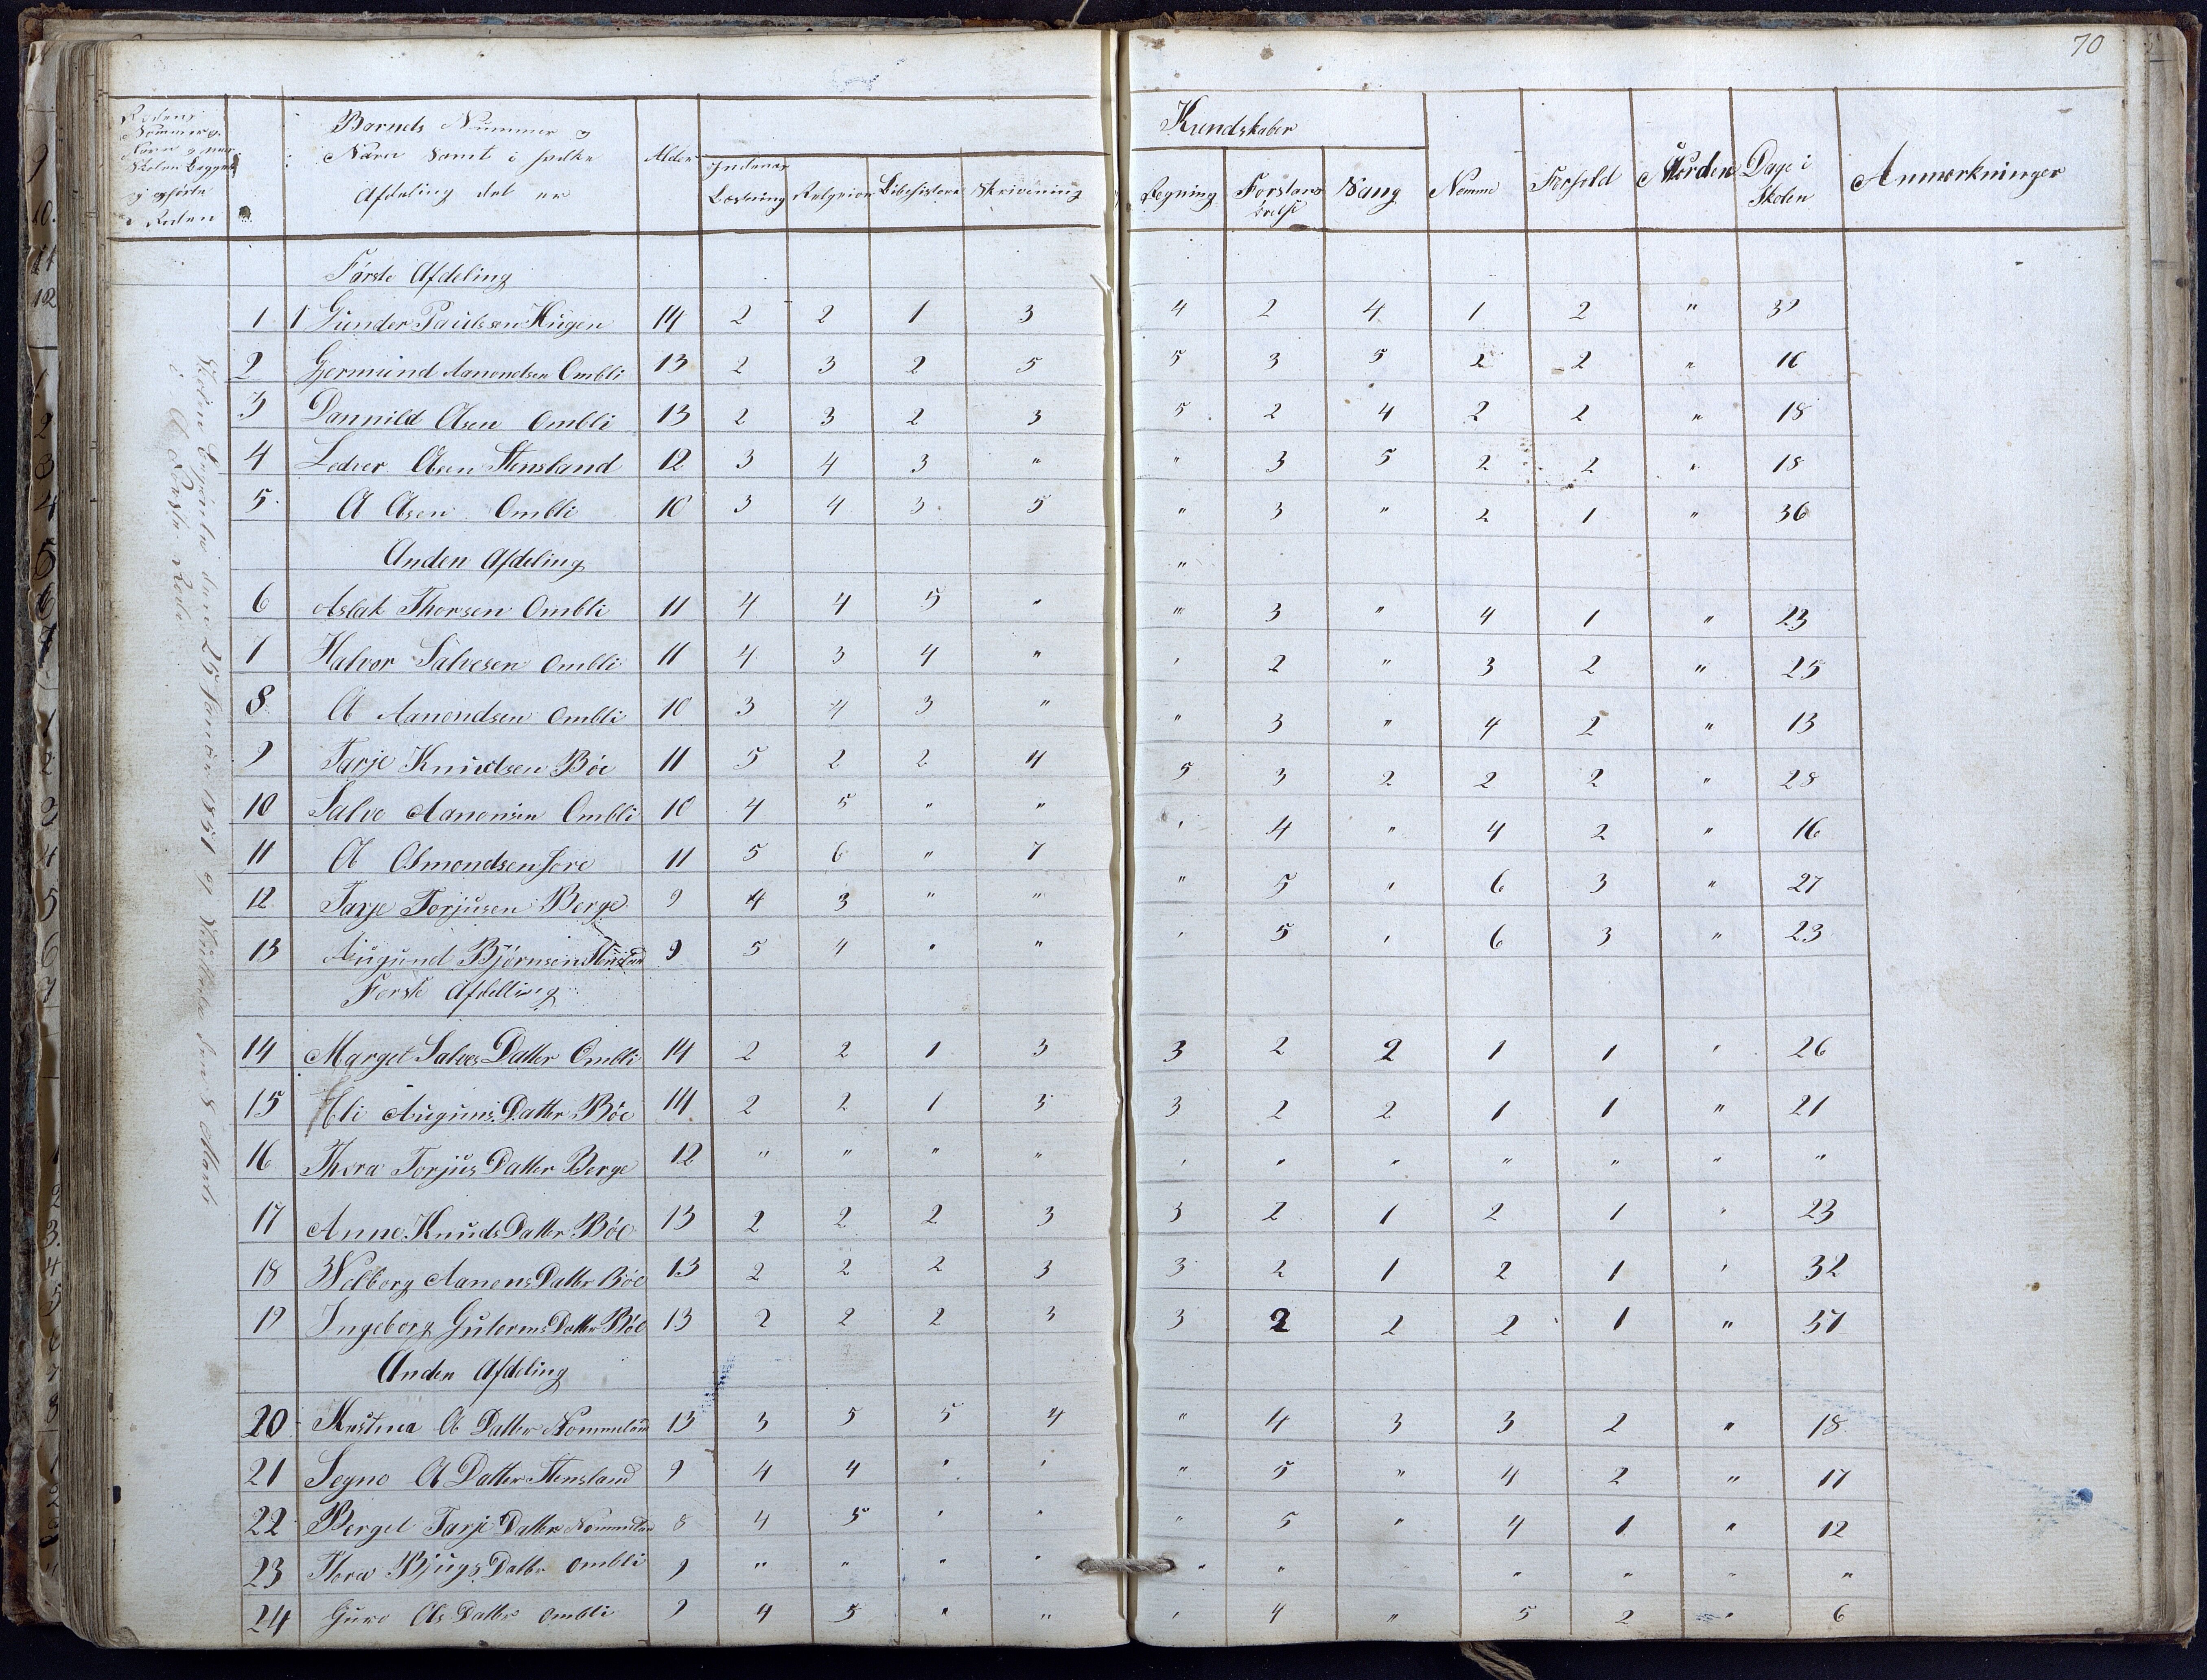 70
Rodens
Nommer og
Navn og naar
Skolen Begynte
og opførte
i Roden
Barnets Nummer og
Navn samt i hvilke
Afdeling det er
Alder
Kundskaber
Indenad
Læsning Relgeion Bibelhistorie Skrivning Regning Forstands øvelse Sang Nemme Forhold Orden Dage i Skolen Anmærkninger
Skolen begyndte den 25 Januar 1851 og Sluttede den 8 Marts
i Første Rode
Første Afdeling
1 1 Gunder Paulssen Haugen 14 2 2 1 3 4 2 4 1 2 " 32
2 Gjermund Aanondsen Ombli 13 2 3 2 5 5 3 5 2 2 " 16
3 Dannild Olsen Ombli 13 2 3 2 3 5 2 4 2 2 " 18
4 Ledver Olsen Stensland 12 3 4 3 " " 3 5 2 2 " 18
5 O Olsen Ombli 10 3 4 3 5 " 3 " 2 1 " 36
Anden Afdeling "
6 Aslak Thorsen Ombli 11 4 4 5 " " 3 " 4 1 " 23
7 Halvor Salvesen Ombli 11 4 3 4 " " 2 " 3 2 " 25
8 O Aanondsen Ombli 10 3 4 3 " " 3 " 4 2 " 13
9 Tarje Knudtsen Böe 11 5 2 2 4 5 3 2 2 2 " 28
10 Salve Aanonsen Ombli 10 4 5 " " " 4 " 4 2 " 16
11 O Osmondsen Jore 11 5 6 " 7 " 5 " 6 3 " 27
12 Tarje Torjusen Berge 9 4 3 " " " 5 " 6 3 " 23
13 Augund Bjørnsen Stensland 9 5 4 " "
Forste Afdelling
14 Marget Salves Datter Ombli 14 2 2 1 3 3 2 2 1 1 " 26
15 Eli Auguns Datter Böe 14 2 2 1 3 3 2 2 1 1 " 21
16 Thora Torjus Datter Berge 12 " " " " " " " " " " "
17 Anne Knuds Datter Böe 13 2 2 2 3 3 2 1 2 1 " 23
18 Velborg Aanens Datter Böe 13 2 2 2 3 3 2 1 2 1 " 32
19 Ingeborg Guterms Datter Böe 13 2 2 2 3 3 2 2 2 1 " 31
Anden Afdeling
20 Kristina O Datter Nommeland 13 3 5 5 4 " 4 3 3 2 " 18
21 Segne O Datter Stensland 9 4 4 " " " 5 " 4 2 " 17
22 Berget Tarje Datter Nommeland 8 4 5 " " " 5 " 4 1 " 12
23 Thora Bjugs Datter Ombli 9 " " " " " " " " " "
24 Guro Ols Datter Ombli 9 4 5 " " " 4 " 5 2 " 6